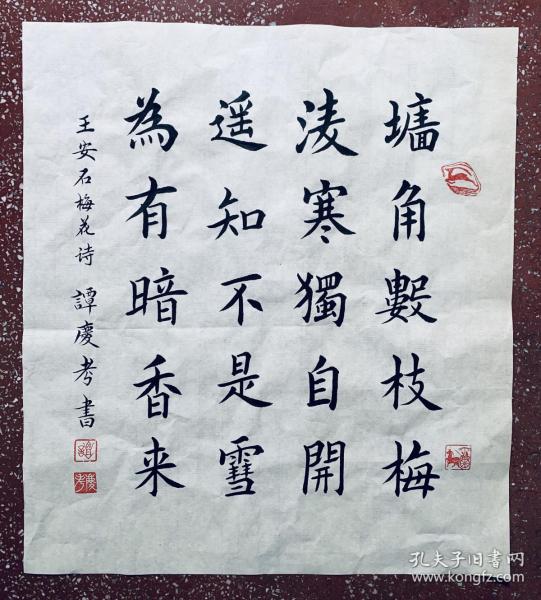 墻角數枝梅
凌寒獨自開
遥知不是雪
為有暗香来
王安石梅花诗 譚慶考書
孔夫子旧书网
www.kongfz.com